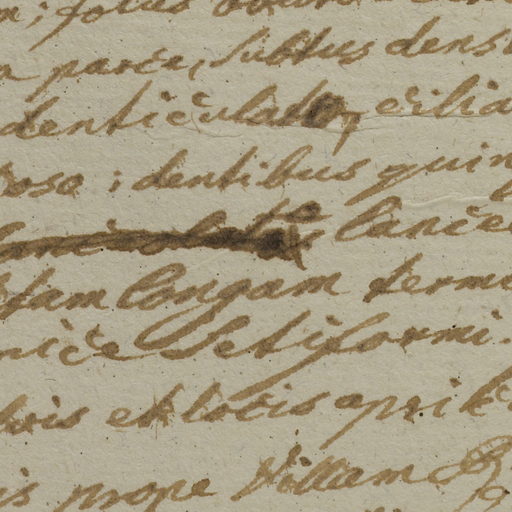 parce, subtus dens
denticulato, cilia
roso; dentibus quin
lance
tam longam term
nice setiformi.
et locis apri
is prope Villam